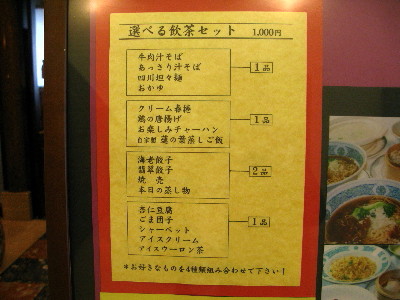 選べる飲茶セット 1,000円
牛肉汁そば
あっさり汁そば
四川坦々麺
おかゆ
1品
クリーム春捲
鶏の唐揚げ
お楽しみチャーハン
自家製 蓮の葉蒸しご飯
1品
海老餃子
翡翠餃子
焼売
本日の蒸し物
2品
杏仁豆腐
ごま団子
シャーベット
アイスクリーム
アイスウーロン茶
1品
*お好きなものを4種類組み合わせて下さい!